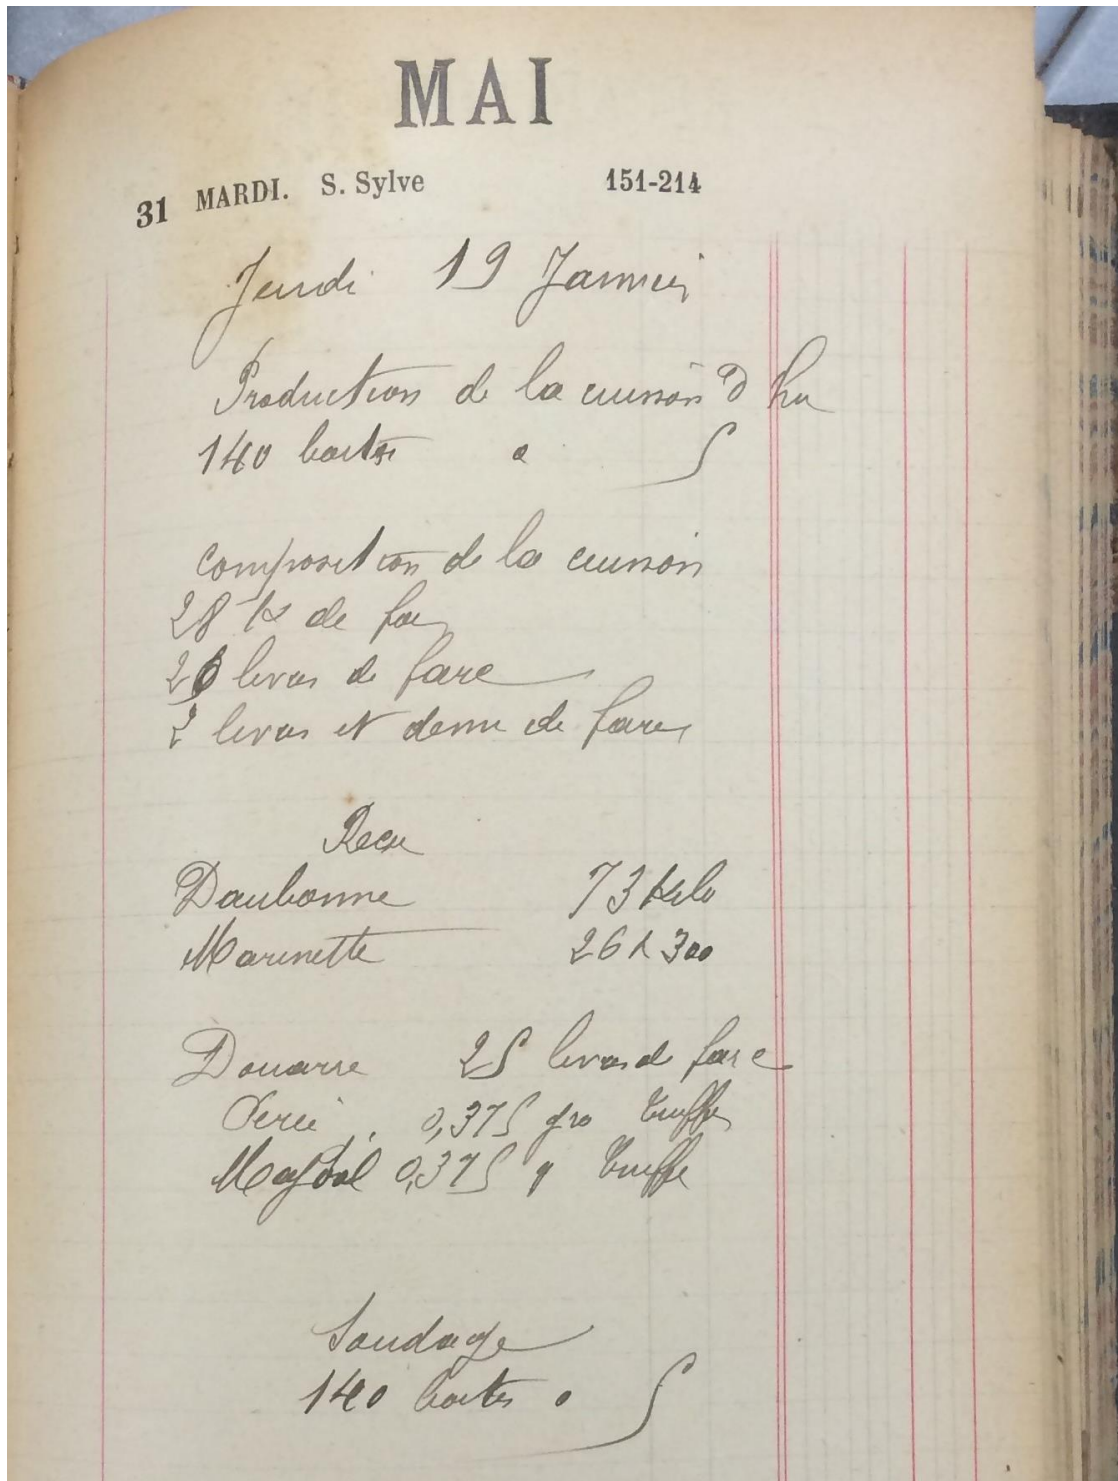 MAI
31 MARDI. S. Sylve 151-214
Jeudi 19 Janvier
Production de la cuisson D hu
140 boites o
composition de la cuisson
28 K de foie
26 livres de farce
2 livres et demie de farce
Recu
Daubonne 73 Kilo
Marinette 26 K 300
Douarre 25 livres de farce
0,375 gro truffes
0,375 g truffe
Soudage
140 boites o